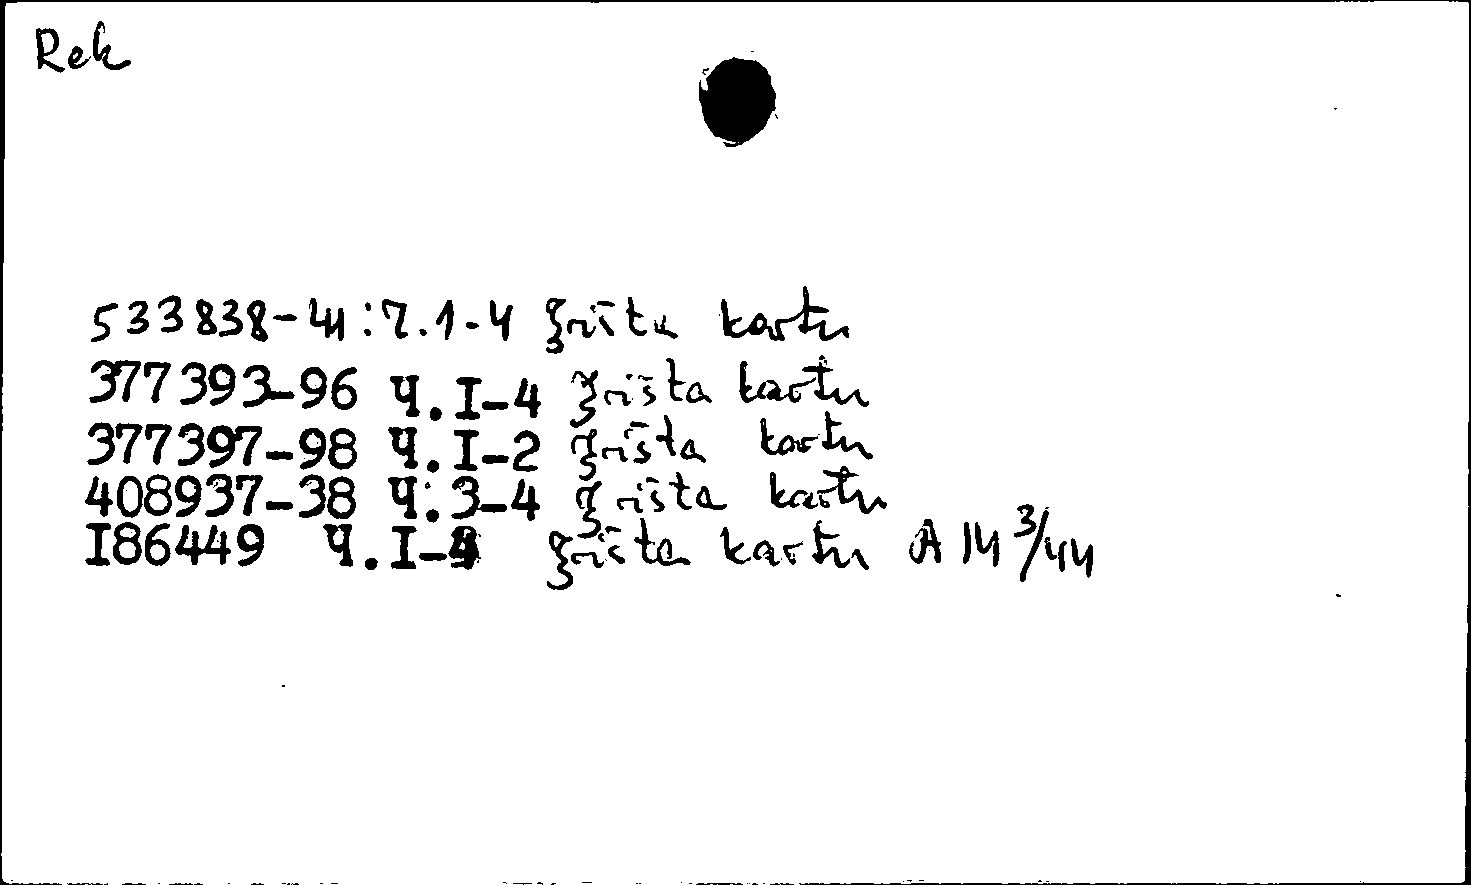 Rek
533838-41:7.1-4 žrišta kartu
377393-96 Ч.I-4 žrišta kartu
377397-98 Ч.I-2 žrišta kartu
408937-38 Ч.3-4 žrišta kartu
I86449 Ч.I- žrišta kartu A 14 3/44